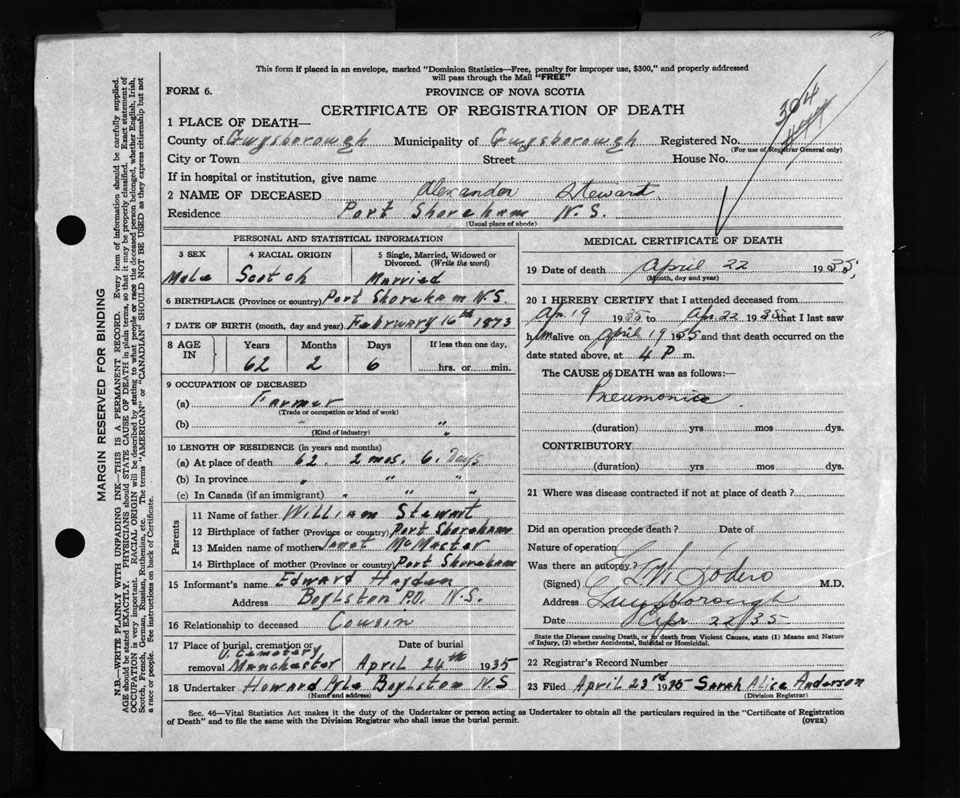 This form if placed in an envelope, marked "Dominion Statistics—Free, penalty for improper use, $300," and properly addressed
will pass through the Mail "FREE"
FORM 6.
PROVINCE OF NOVA SCOTIA
CERTIFICATE OF REGISTRATION OF DEATH
304
1 PLACE OF DEATH—
County of Guysborough Municipality of Guysborough Registered No.
(For use of Registrar General only)
City or Town Street House No.
If in hospital or institution, give name
2 NAME OF DECEASED Alexander Steward
Residence Port Shoreham N.S.
(Usual place of abode)
PERSONAL AND STATISTICAL INFORMATION
3 SEX 4 RACIAL ORIGIN 5 Single, Married, Widowed or Divorced. (Write the word)
Male Scotch Married
6 BIRTHPLACE (Province or country) Port Shoreham N.S.
7 DATE OF BIRTH (month, day and year) February 16th 1873
8 AGE IN Years Months Days If less than one day,
62 2 6 hrs. or min.
9 OCCUPATION OF DECEASED
(a) Farmer
(Trade or occupation or kind of work)
(b) " "
(Kind of industry) "
10 LENGTH OF RESIDENCE (in years and months)
(a) At place of death 62. 2 mos. 6. Days
(b) In province " " "
(c) In Canada (if an immigrant) " " "
Parents
11 Name of father William Stewart
12 Birthplace of father (Province or country) Port Shoreham
13 Maiden name of mother Janet McMaster
14 Birthplace of mother (Province or country) Port Shoreham
15 Informant's name Edward Hayden
Address Boylston P.O. N.S.
16 Relationship to deceased Cousin
17 Place of burial, cremation or removal Date of burial
Cemetery
Manchester April 24th 1935
18 Undertaker Howard Pyle Boylston N S
(Name and address)
MEDICAL CERTIFICATE OF DEATH
19 Date of death April 22 1935
(Month, day and year)
20 I HEREBY CERTIFY that I attended deceased from
Ap 19 1935 to Apr 22 1935 that I last saw
him alive on April 19 1935 and that death occurred on the
date stated above, at 4 P m.
The CAUSE of DEATH was as follows:—
Pneumonia
(duration) yrs mos dys.
CONTRIBUTORY
(duration) yrs mos dys.
21 Where was disease contracted if not at place of death?
Did an operation precede death? Date of
Nature of operation
Was there an autopsy?
(Signed) M.D.
Address Guysborough
Date Apr 22/35
State the Disease causing Death, or in death from Violent Causes, state (1) Means and Nature of Injury, (2) whether Accidental, Suicidal or Homicidal.
22 Registrar's Record Number
23 Filed April 23rd 1935 Sarah Alice Anderson
(Division Registrar)
Sec. 46—Vital Statistics Act makes it the duty of the Undertaker or person acting as Undertaker to obtain all the particulars required in the "Certificate of Registration
of Death" and to file the same with the Division Registrar who shall issue the burial permit.
(OVER)
MARGIN RESERVED FOR BINDING
N.B.—WRITE PLAINLY WITH UNFADING INK—THIS IS A PERMANENT RECORD. Every item of information should be carefully supplied.
AGE should be stated EXACTLY. PHYSICIANS should STATE CAUSE OF DEATH in plain terms, so that it may be properly classified. Exact statement of
OCCUPATION is very important. RACIAL ORIGIN will be described by stating to what people or race the deceased person belonged, whether English, Irish,
Scotch, French, German, Russian, Ruthenian, etc. The terms "AMERICAN" or "CANADIAN" SHOULD NOT BE USED as they express citizenship but not
a race or people. See instructions on back of Certificate.